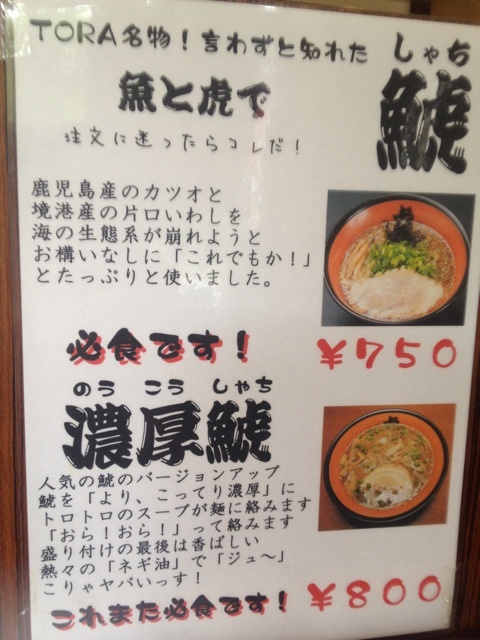 TORA名物！言わずと知れた
しゃち
魚と虎で
鯱
注文に迷ったらコレだ！
鹿児島産のカツオと
境港産の片口いわしを
海の生態系が崩れようと
お構いなしに「これでもか！」
とたっぷりと使いました。
必食です！
¥750
のう こう しゃち
濃厚鯱
人気の鯱のバージョンアップ
鯱を「より、こってり濃厚」に
トロトロのスープが麺に絡みます
「おら！おら！」って絡みます
盛り付けの最後は香ばしい
熱々の「ネギ油」で「ジュ〜」
こりゃヤバいっす！
これまた必食です！
¥800